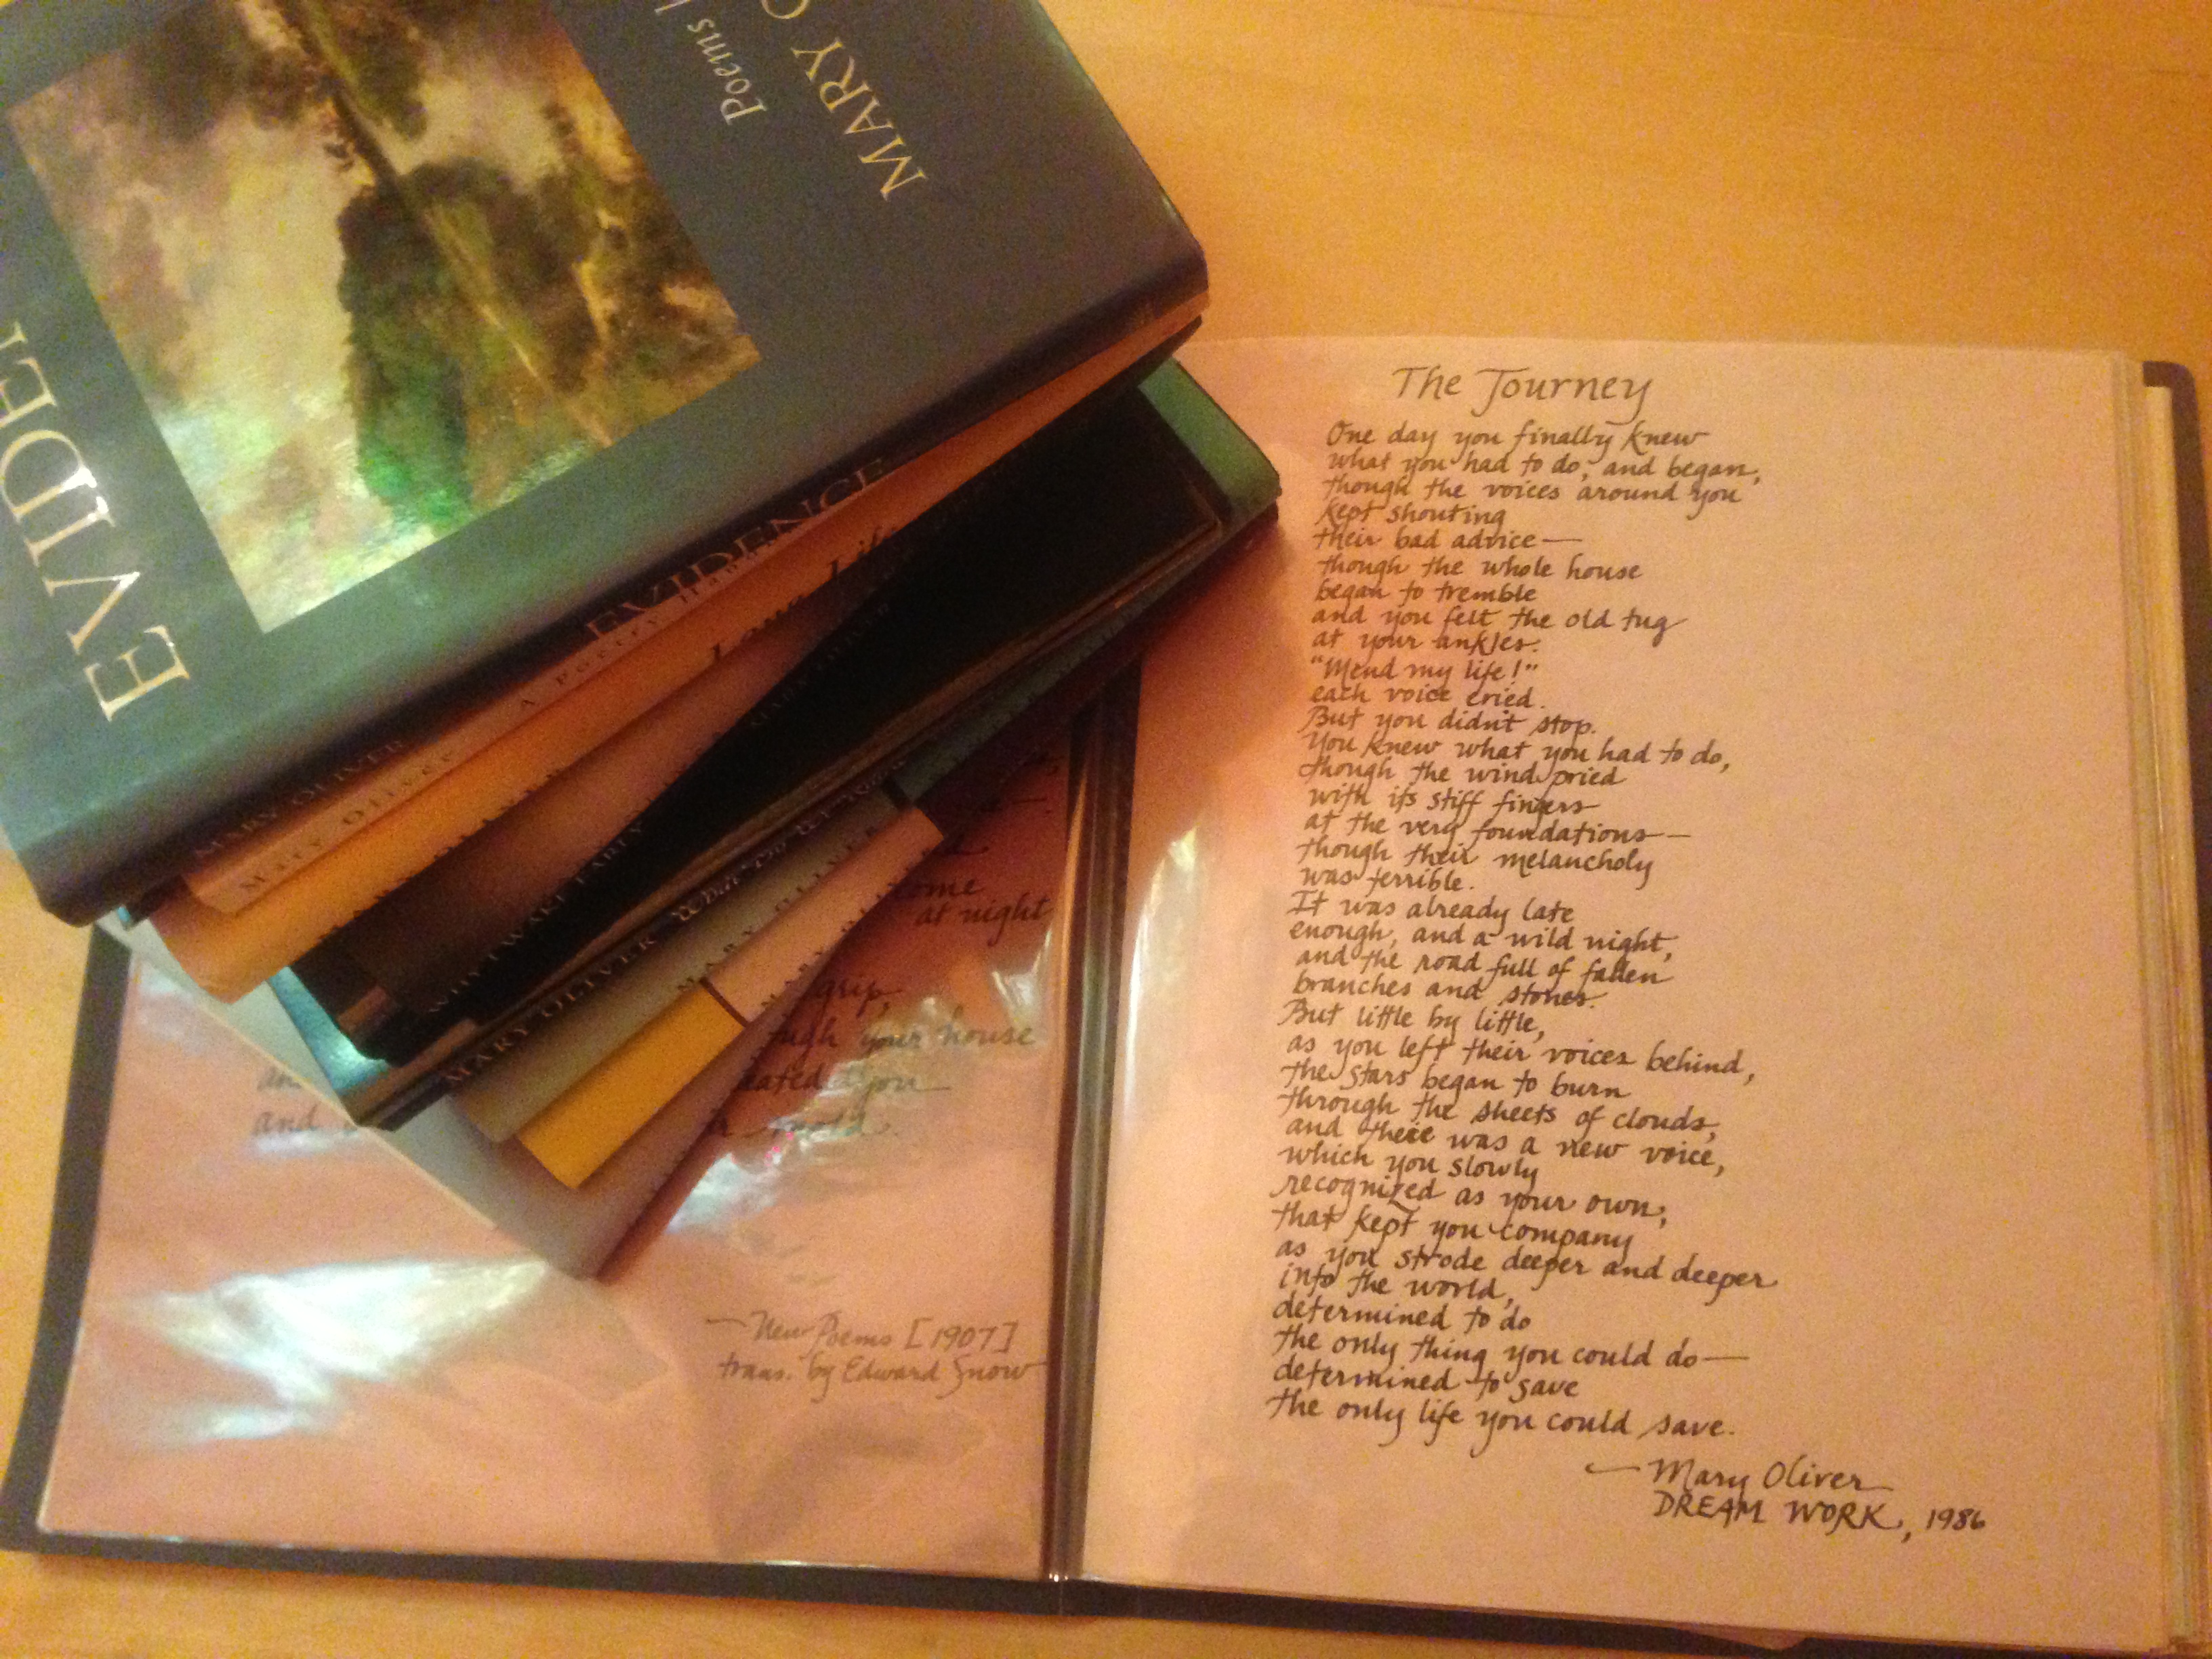 EVIDE
Poems
MARY O
EVIDENCE
MARY OLIVER
Mary Oliver A Poetry Handbook
Long Life
WHY I WAKE EARLY MARY OLIVER
MARY OLIVER What Do We Know
MARY OLIVER
MARY OLIVER
come
at night
grip,
your house
you
and
— New Poems [1907]
trans. by Edward Snow
The Journey
One day you finally knew
what you had to do, and began,
though the voices around you
kept shouting
their bad advice—
though the whole house
began to tremble
and you felt the old tug
at your ankles.
"Mend my life!"
each voice cried.
But you didn't stop.
You knew what you had to do,
though the wind pried
with its stiff fingers
at the very foundations—
though their melancholy
was terrible.
It was already late
enough, and a wild night,
and the road full of fallen
branches and stones.
But little by little,
as you left their voices behind,
the stars began to burn
through the sheets of clouds,
and there was a new voice,
which you slowly
recognized as your own,
that kept you company
as you strode deeper and deeper
into the world,
determined to do
the only thing you could do—
determined to save
the only life you could save.
— Mary Oliver
DREAM WORK, 1986